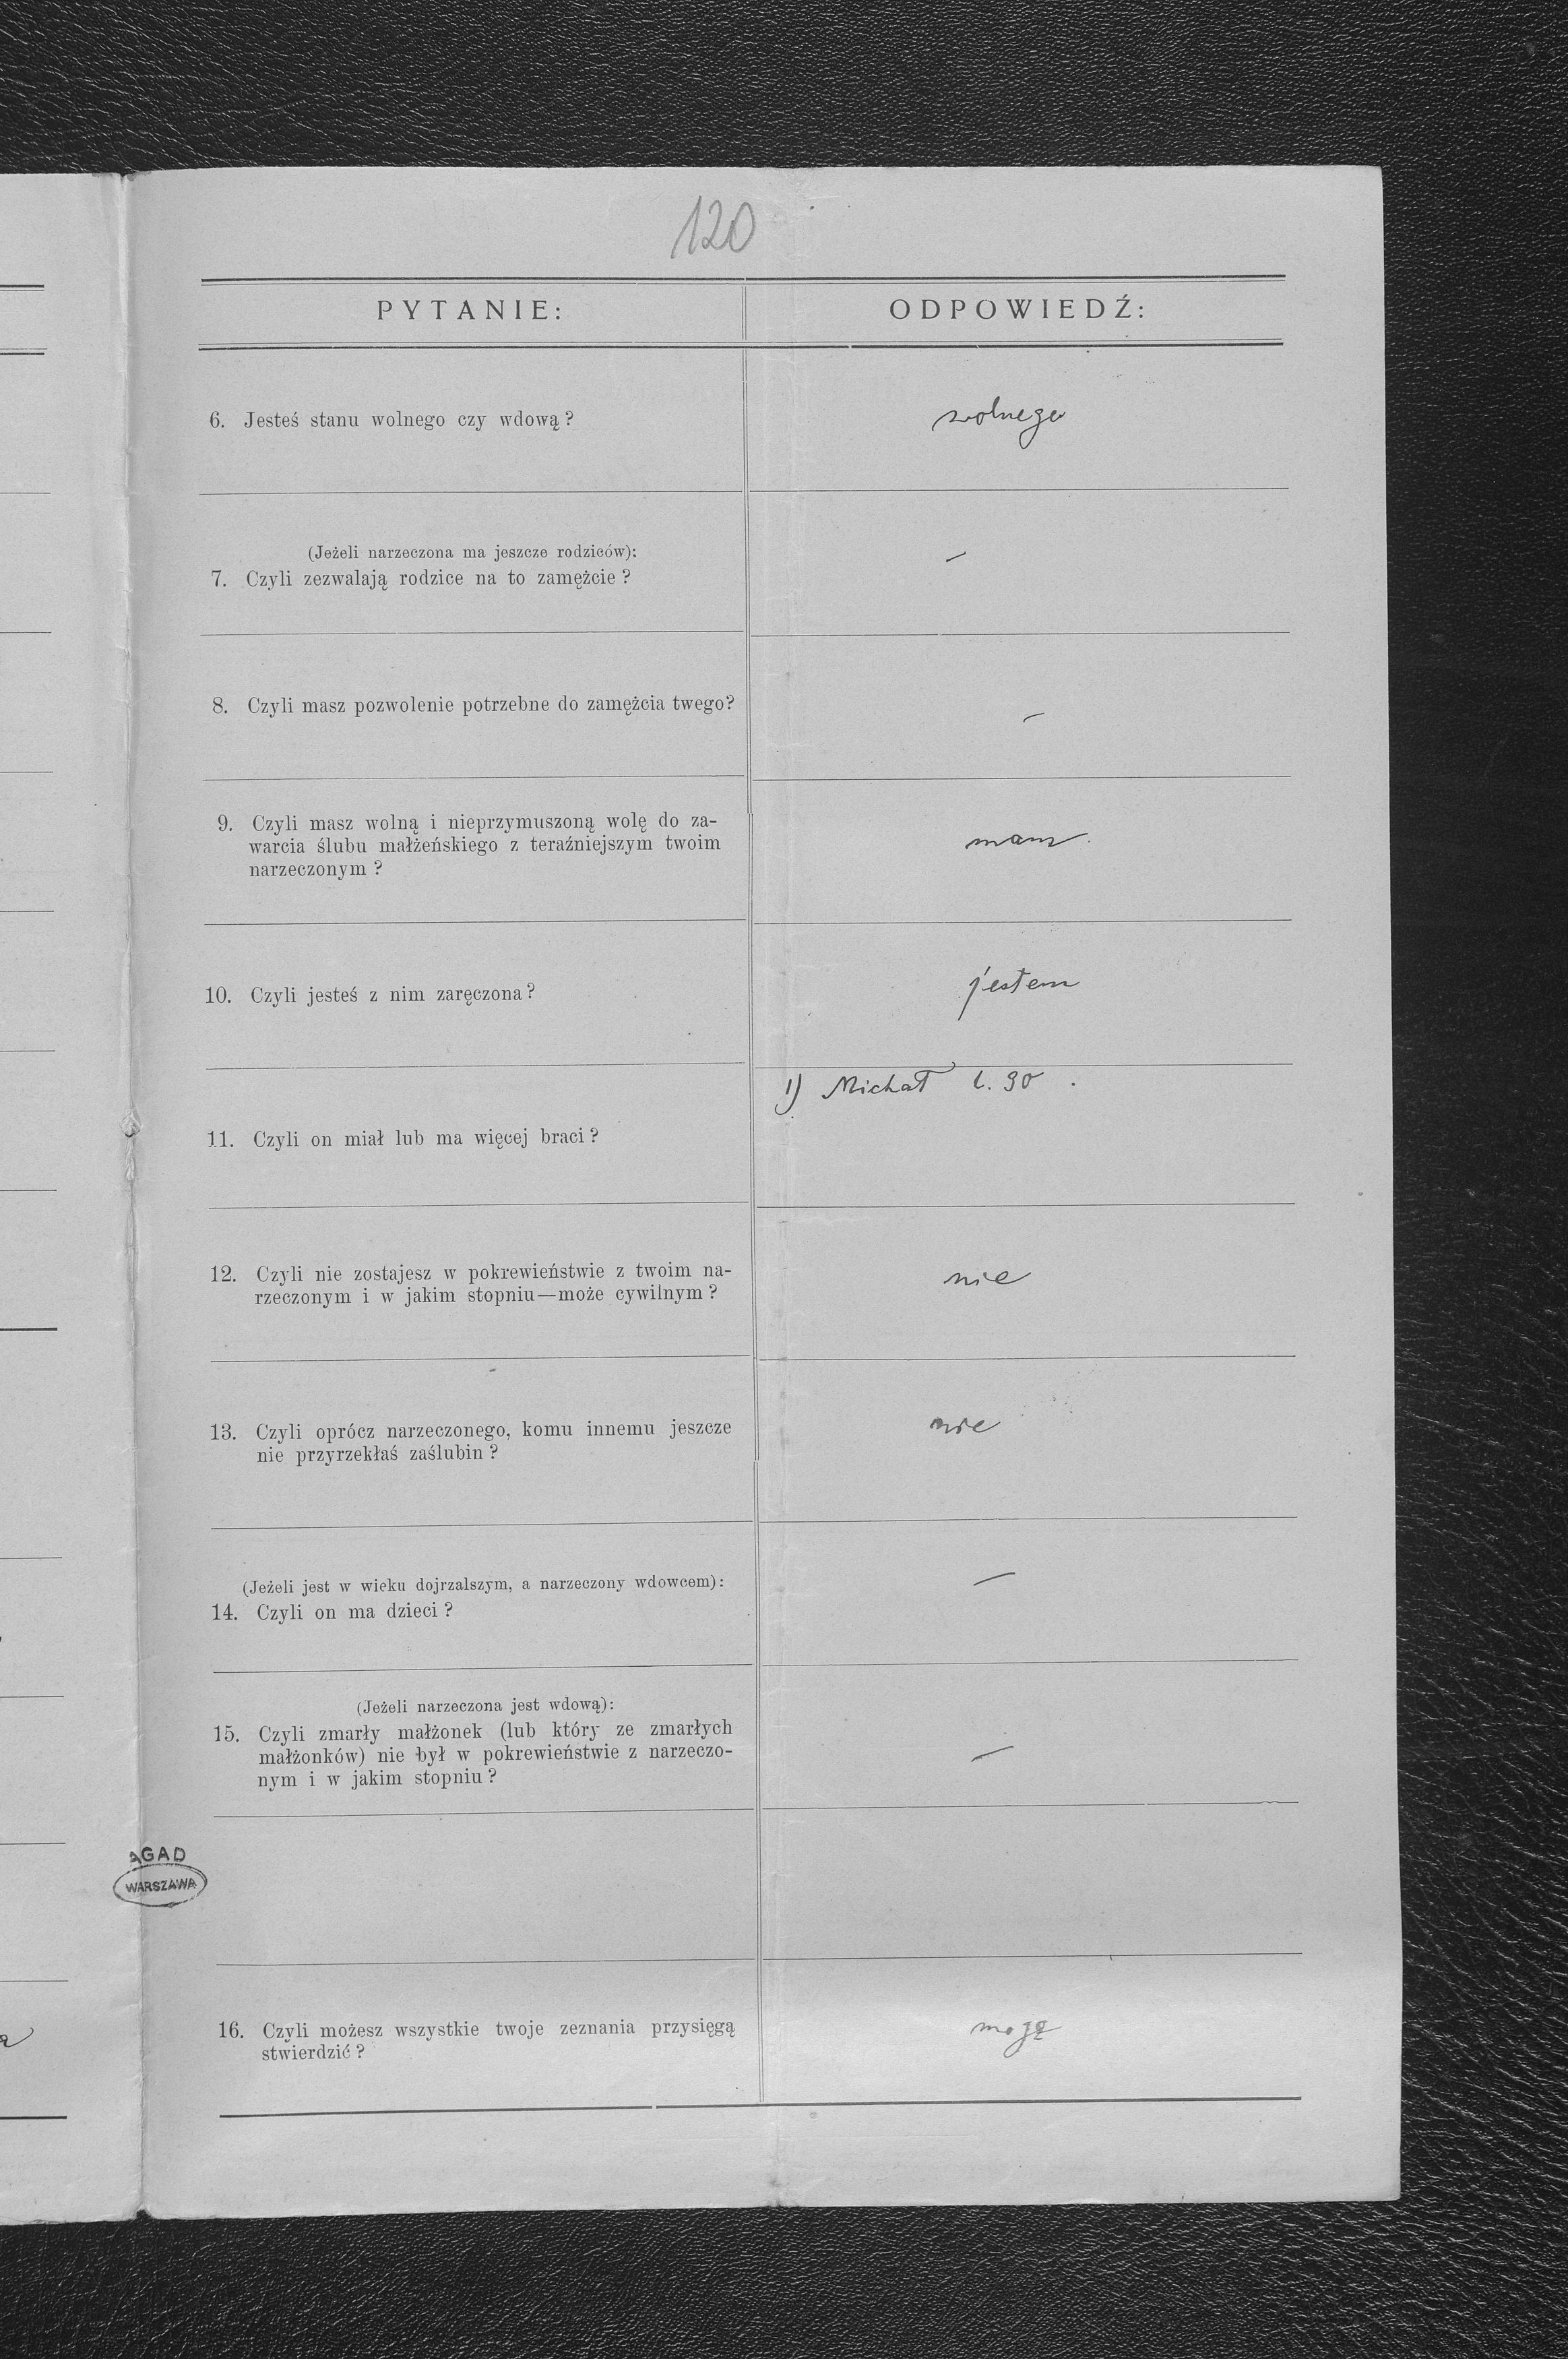 120
PYTANIE:
ODPOWIEDŹ:
6. Jesteś stanu wolnego czy wdową?
wolnego
(Jeżeli narzeczona ma jeszcze rodziców):
7. Czyli zezwalają rodzice na to zamężcie?
—
8. Czyli masz pozwolenie potrzebne do zamężcia twego?
—
9. Czyli masz wolną i nieprzymuszoną wolę do za-
warcia ślubu małżeńskiego z teraźniejszym twoim
narzeczonym?
mam
10. Czyli jesteś z nim zaręczona?
jestem
11. Czyli on miał lub ma więcej braci?
1) Michał l. 30
12. Czyli nie zostajesz w pokrewieństwie z twoim na-
rzeczonym i w jakim stopniu—może cywilnym?
nie
13. Czyli oprócz narzeczonego, komu innemu jeszcze
nie przyrzekłaś zaślubin?
nie
(Jeżeli jest w wieku dojrzalszym, a narzeczony wdowcem):
14. Czyli on ma dzieci?
—
(Jeżeli narzeczona jest wdową):
15. Czyli zmarły małżonek (lub który ze zmarłych
małżonków) nie był w pokrewieństwie z narzeczo-
nym i w jakim stopniu?
—
AGAD
WARSZAWA
16. Czyli możesz wszystkie twoje zeznania przysięgą
stwierdzić?
mogę